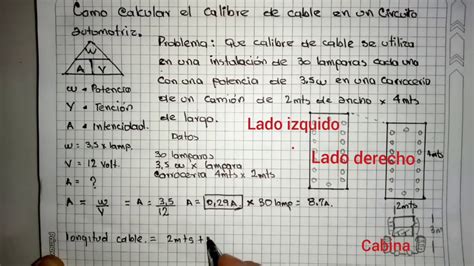 Como calcular el calibre de cable en un Circuito
automotriz.
Problema: Que calibre de cable se utiliza
en una instalación de 30 lamparas cada uno
con una potencia de 3,5w en una Carroceria
de un camión de 2mts de ancho x 4mts
de largo.
W
A V
w = Potencia
V = Tención
A = Intencidad.
w = 3,5 x lamp.
V = 12 Volt.
A = ?
Datos
30 lamparas
3,5 w x lampara
Carroceria 4mts x 2mts
A = w/V = A = 3,5/12 A = 0,29A. x 30 lamp = 8.7A.
longitud cable. = 2mts +
Lado izquido
Lado derecho
4mts
2mts
1m
Cabina